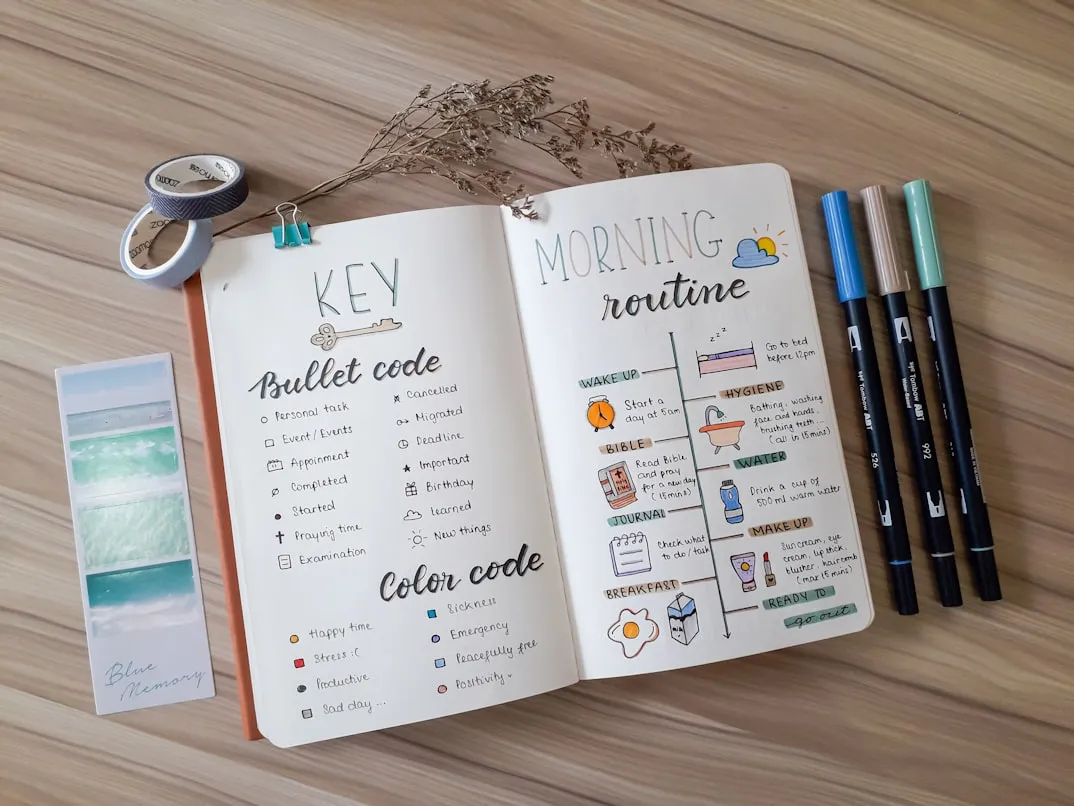 KEY
Bullet code
Personal task
Event/Events
Appoinment
Completed
Started
Praying time
Examination
Cancelled
Migrated
Deadline
Important
Birthday
Learned
New things
Color code
Happy time
Stress :(
Productive
Sad day...
Sickness
Emergency
Peacefully free
Positivity
MORNING
routine
z z z
Go to bed
before 12pm
WAKE UP
Start a
day at 5am
HYGIENE
Bathing, washing
face and hands,
brushing teeth...
(all in 15mins)
BIBLE
Read Bible
and pray
for a new day
(15mins)
WATER
Drink a cup of
500 ml warm water
JOURNAL
Check what
to do / task
MAKE UP
Suncream, eye
cream, lipstick,
blusher, haircomb
(max 15 mins)
BREAKFAST
READY TO
go out
Blue
Memory
Tombow ABT
526
Tombow ABT
992